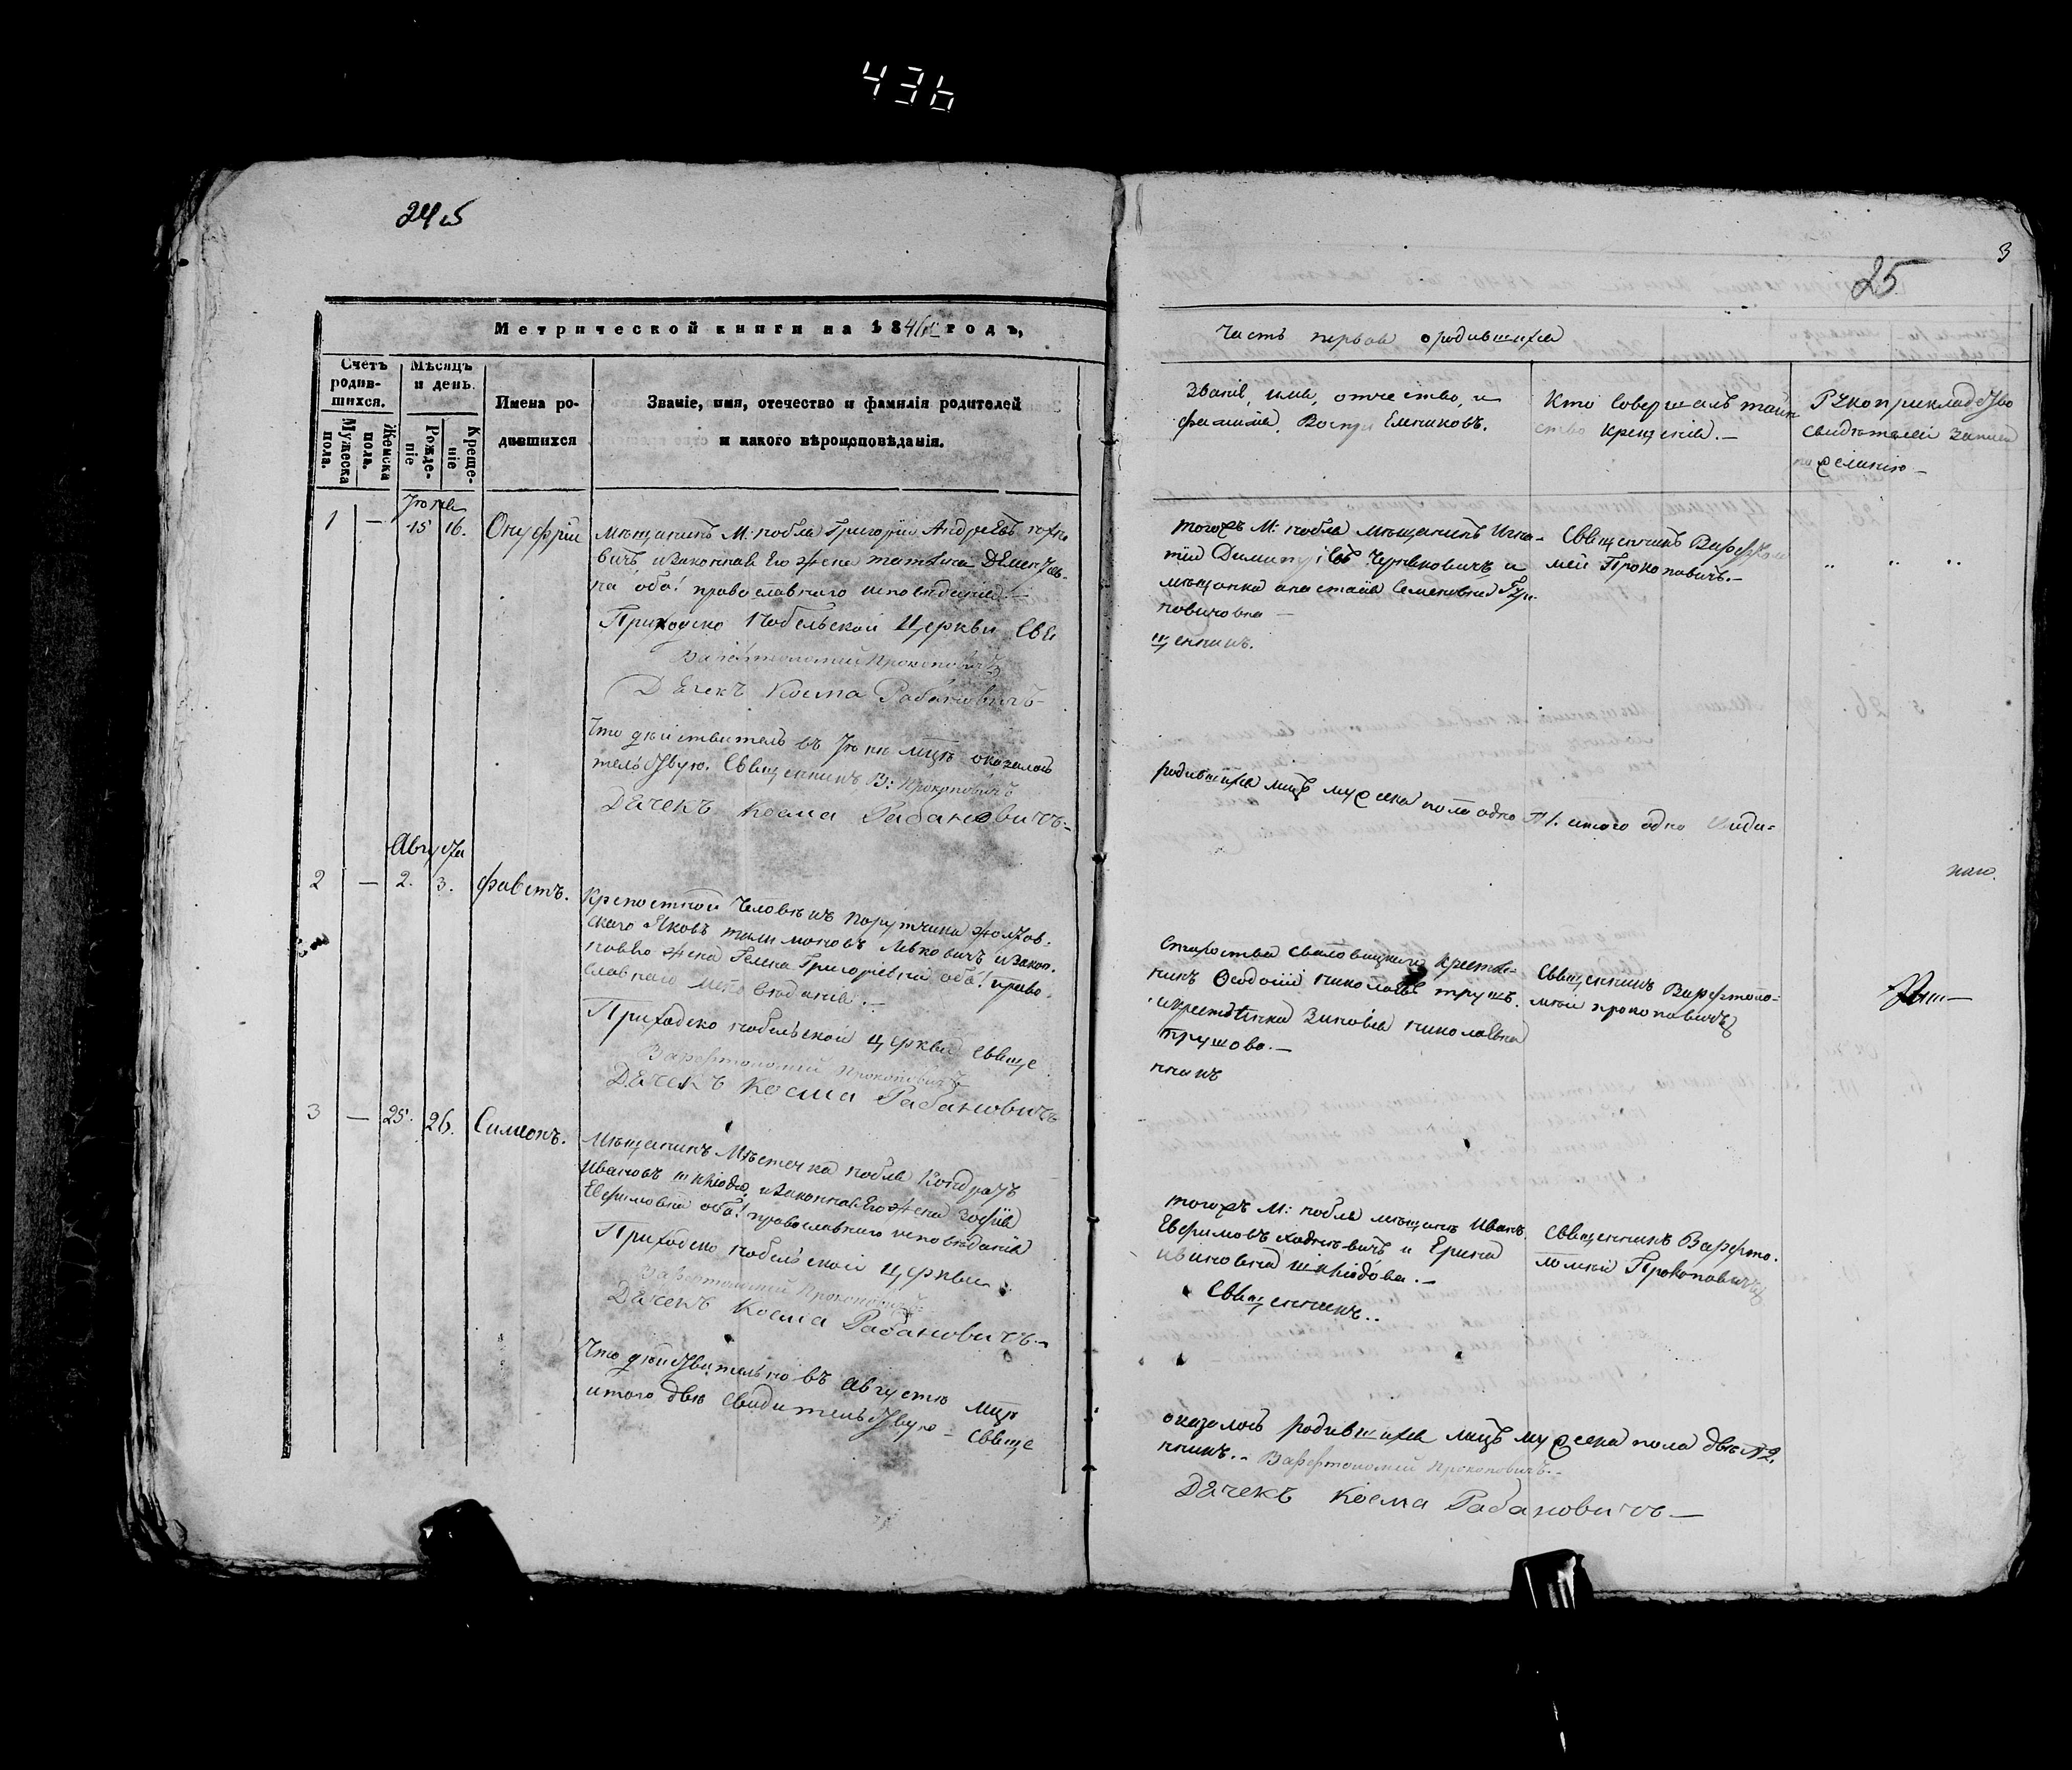 436
24 об
Метрической книги на 1846й годъ,
Счетъ родив-шихся.
Мѣсяцъ и день.
Имена ро-
дившихся
Званіе, имя, отечество и фамилія родителей
и какого вѣроисповѣданія.
Мужеска пола.
Женска пола.
Рожде-ніе
Креще-ніе
Іюня
1 — 15 16. Онуфрій
Мѣщанинъ М: нобля Григорій Андреевъ
вичъ изаконная Его жена татяна
на оба! православнаго исповѣданія —
Приходско Нобельской Церкви Свя
Варфтоломей Прокоповичъ
Дячекъ Косма Рабановичъ
Что дѣйствитель въ Іюнѣ мцѣ оказалось
тельствую. Священникъ В: Прокоповичъ
Дячекъ Косма Рабановичъ.-
Августа
2 — 2. 3. фавстъ.
Крепостной Человѣкъ Порутчика
скаго Яковъ Левковичъ изакон.
ноего жена Гелена Григоріевна оба! право.
славнаго исповѣданія.—
Приходско нобельской церкви Свяще
Варфтоломей Прокоповичъ
Дячекъ Косма Рабановичъ
3 — 25. 26. Симеонъ.
Мѣщанинъ Мѣстечка нобля Кондратъ
Ивановъ изаконная Его жена Зофія
Евфимовна оба! православнаго исповѣданія
Приходско нобельской церкви
Варфтоломей Прокоповичъ
Дячекъ Косма Рабановичъ.—
Что дѣйствительно въ Августѣ мцѣ
итого двѣ Свидительствую — Свяще
3
25
Часть первая ородившихся
Званіе, имя, отчество, и
фамилія, Воспріемниковъ.
Кто Совершалъ таин
ство крещенія.—
Рукоприкладство
свидѣтелей записи
по желанію—
тогожъ М: нобля мѣщанинъ Игна-
тій Димитріевъ и
мѣщанка анастасія Семеновна
повичовна —
щенникъ.
Священникъ Варфтоло
мей Прокоповичъ.—
" " "
родившихся лицъ мужеска пола одно №1. итого одно Свиди=
Крестья-
нинъ Ѳеодосій николаевъ трушъ.
икрестьянка Зиновія николаевна
трушова.—
нникъ
Священникъ Варфтоло=
мѣй прокоповичъ
тогожъ М: нобля мѣщанъ Иванъ
Евфимовъ и Ерина
ивановна
Священникъ..
Священникъ Варфто.
ломей Прокоповичъ
оказалось родившихся лицъ мужеска пола двѣ №2.
нникъ.- Варфтоломей Прокоповичъ.-
Дячекъ Косма Рабановичъ—